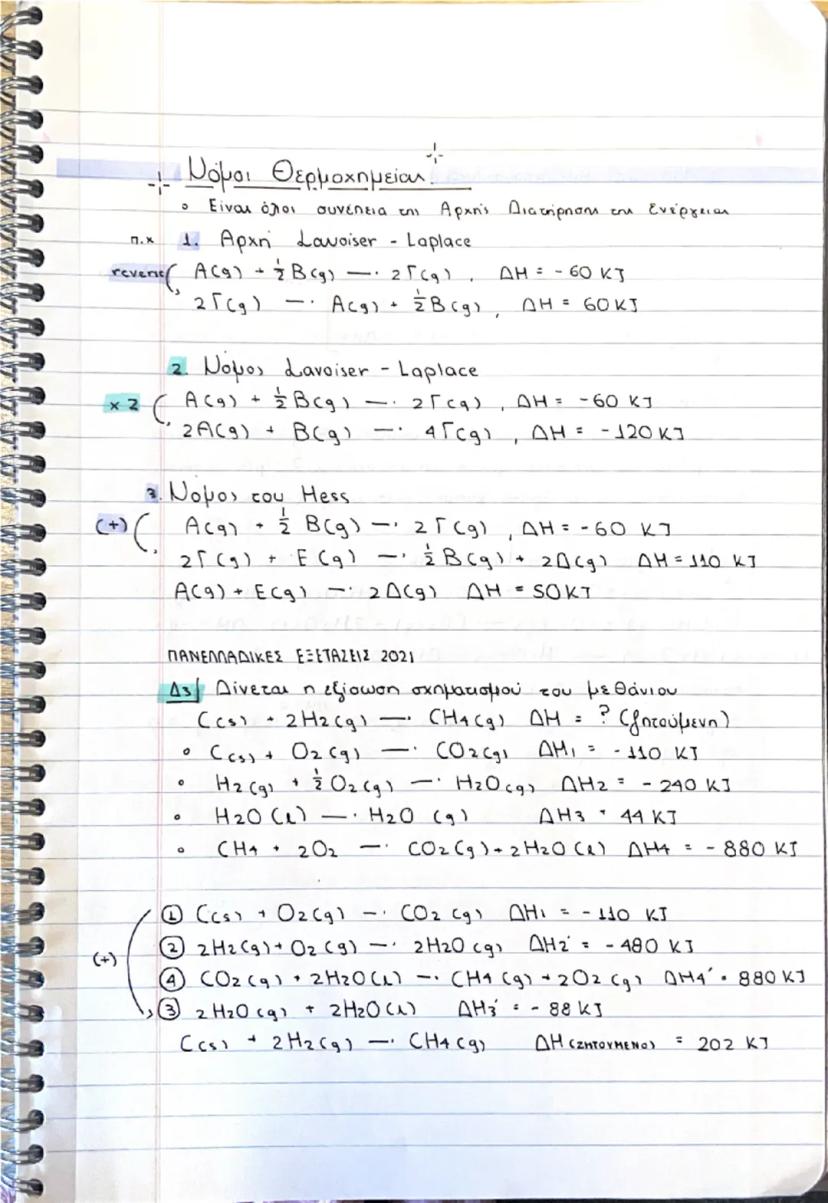 Νόμοι Θερμοχημείας
• Είναι όλοι συνέπεια της Αρχής Διατήρησης της Ενέργειας
π.χ 1. Αρχή Lavoiser - Laplace
reverse ( A(g) + ½ B(g) → 2Γ(g) , ΔH = - 60 KJ
2Γ(g) → A(g) + ½ B(g) , ΔH = 60 KJ
2. Νόμος Lavoiser - Laplace
x 2 ( A(g) + ½ B(g) → 2Γ(g) , ΔH = -60 KJ
2A(g) + B(g) → 4Γ(g) , ΔH = -120 KJ
3. Νόμος του Hess
(+) ( A(g) + ½ B(g) → 2Γ(g) , ΔH = -60 KJ
2Γ(g) + E(g) → ½ B(g) + 2Δ(g) ΔH = 110 KJ
A(g) + E(g) → 2Δ(g) ΔH = 50 KJ
ΠΑΝΕΛΛΑΔΙΚΕΣ ΕΞΕΤΑΣΕΙΣ 2021
Δ3 Δίνεται η εξίσωση σχηματισμού του μεθάνιου
C(s) + 2H2(g) → CH4(g) ΔH = ? (ζητούμενη)
• C(s) + O2(g) → CO2(g) ΔH1 = - 110 KJ
• H2(g) + ½ O2(g) → H2O(g) ΔH2 = - 240 KJ
• H2O(l) → H2O (g) ΔH3 = 44 KJ
• CH4 + 2O2 → CO2(g) + 2H2O(l) ΔH4 = - 880 KJ
① C(s) + O2(g) → CO2(g) ΔH1 = - 110 KJ
(+) ② 2H2(g) + O2(g) → 2H2O(g) ΔH2' = - 480 KJ
④ CO2(g) + 2H2O(l) → CH4(g) + 2O2(g) ΔH4' = 880 KJ
③ 2H2O(g) + 2H2O(l) ΔH3' = - 88 KJ
C(s) + 2H2(g) → CH4(g) ΔH(ΖΗΤΟΥΜΕΝΟ) = 202 KJ